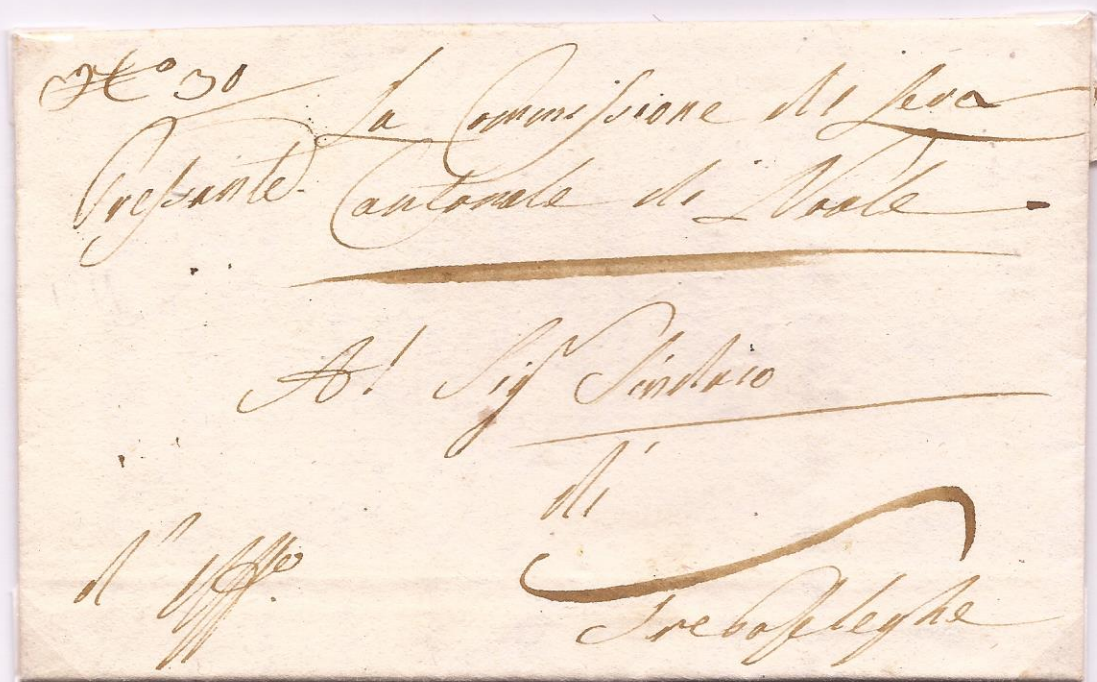 N° 30
Pressante
La Commissione di Leva
Cantonale di Noale
Al Sig.r Sindaco
di
Trebaseleghe
d' Uff.o